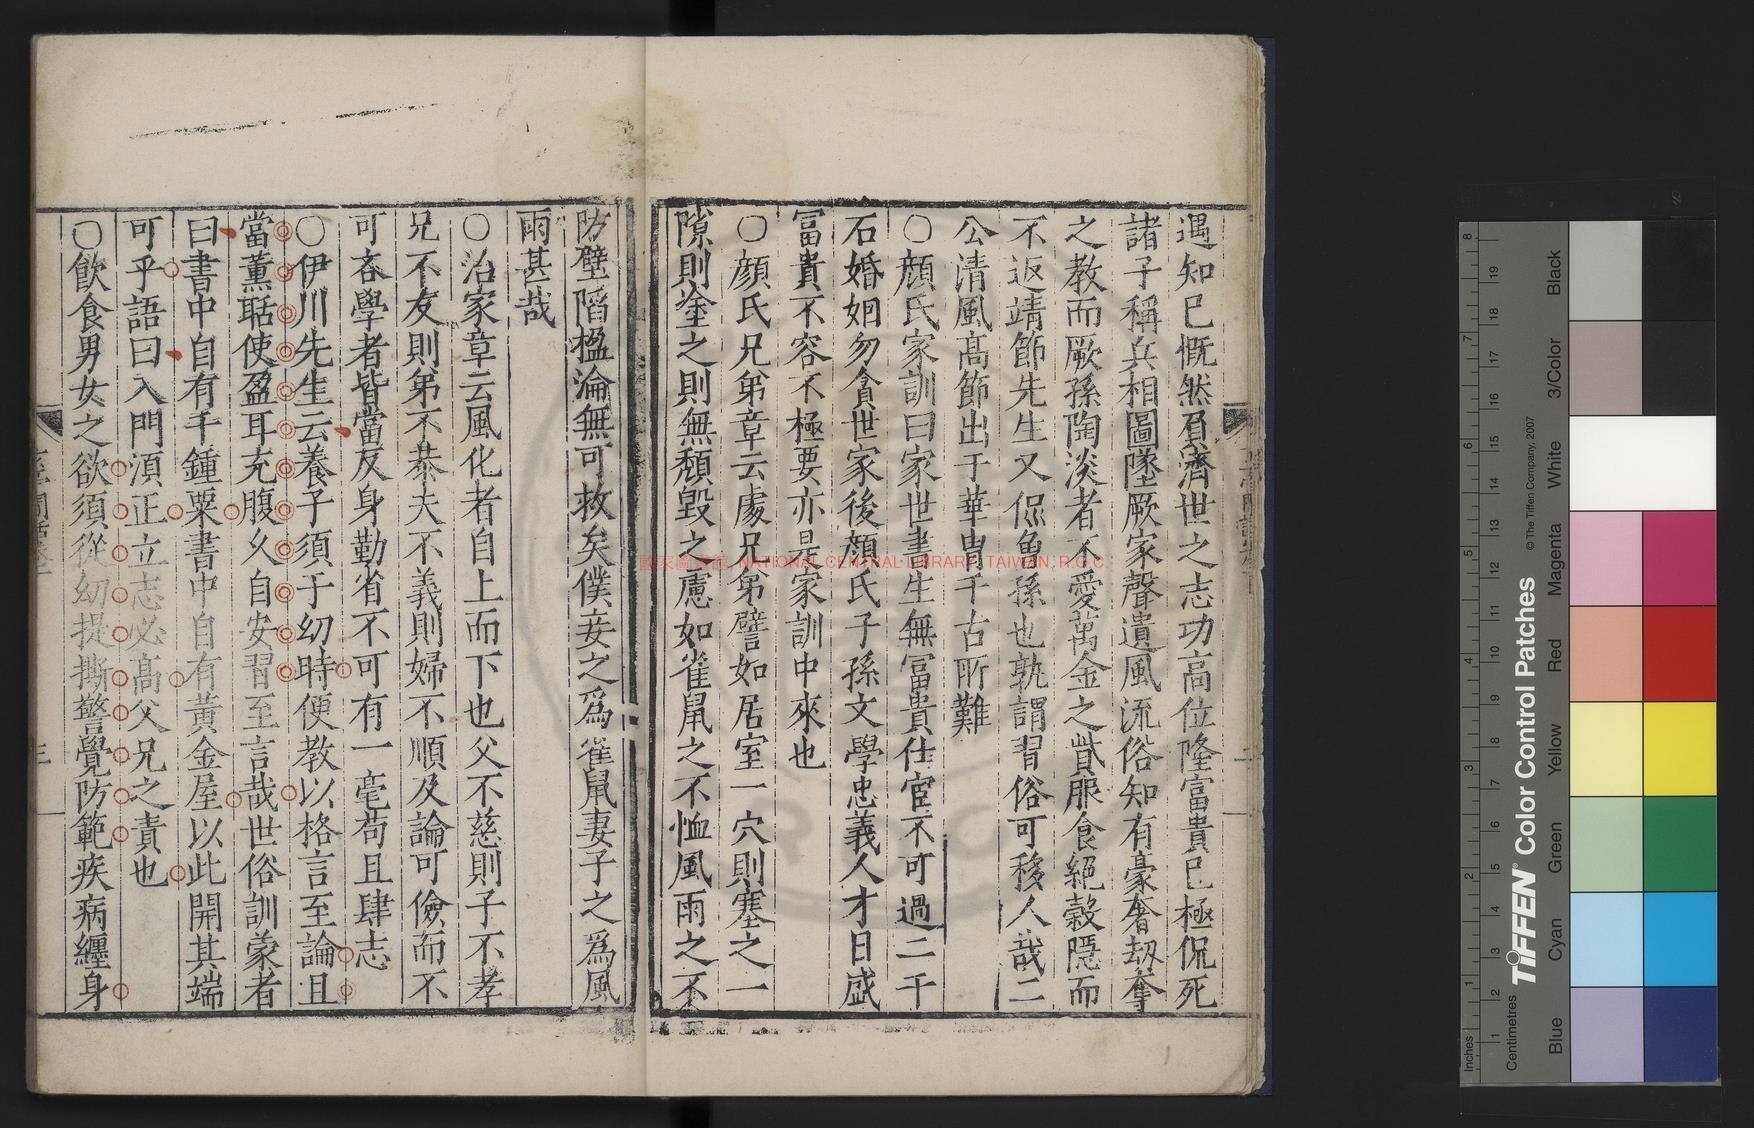 遇知己慨然負濟世之志功高位隆富貴已極侃死
諸子稱兵相圖墜厥家聲遺風流俗知有豪奢刼奪
之教而厥孫陶淡者不愛萬金之貲服食絕穀隱而
不返靖節先生又侃魯孫也孰謂習俗可移人哉二
公清風髙節出于華胄千古所難
○顔氏家訓曰家世書生無冨貴仕宦不可過二千
石婚姻勿貪世家後顔氏子孫文學忠義人才日盛
冨貴不容不極要亦是家訓中來也
○顔氏兄弟章云處兄弟譬如居室一穴則塞之一
隙則塗之則無頹毀之慮如雀鼠之不恤風雨之不
防壁陷楹淪無可救矣僕妾之為雀鼠妻子之為風
雨甚哉
○治家章云風化者自上而下也父不慈則子不孝
兄不友則弟不恭夫不義則婦不順及論可儉而不
可吝學者皆當反身勤省不可有一毫苟且肆志
○伊川先生云養子須于幼時便教以格言至論且
當薰聒使盈耳充腹乆自安習至言哉世俗訓蒙者
曰書中自有千鍾粟書中自有黄金屋以此開其端
可乎語曰入門須正立志必髙父兄之責也
○飲食男女之欲須從幼提撕警覺防範疾病纏身
三
國家圖書館 NATIONAL CENTRAL LIBRARY, TAIWAN, R.O.C
Inches
Centimetres
TIFFEN® Color Control Patches
© The Tiffen Company, 2007
Blue
Cyan
Green
Yellow
Red
Magenta
White
3/Color
Black